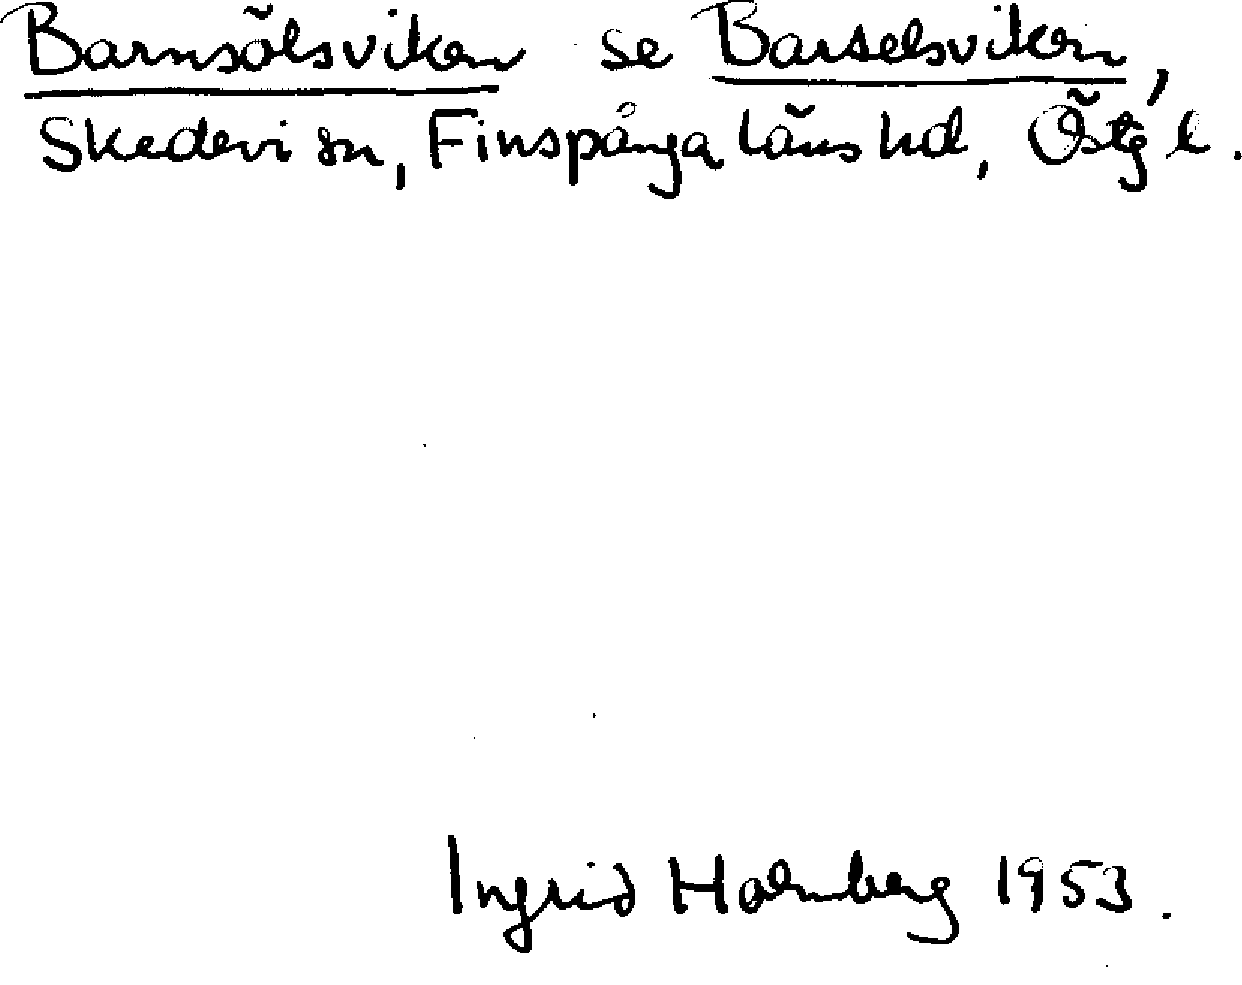 Barnsölsviken se Barselsviken,
Skedevi sn, Finspånga läns hd, Östg l.
Ingrid Holmberg 1953.